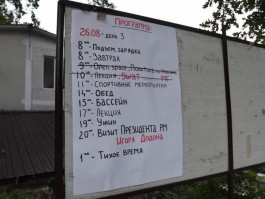 ПРОГРАММА
26.08 - ДЕНЬ 3
8⁰⁰ - Подъём, зарядка
8³⁰ - Завтрак
9⁰⁰ - Open space
10⁰⁰ - Лекция SWOT
11⁰⁰ - Спортивные мероприятия
14⁰⁰ - ОБЕД
15⁰⁰ - БАССЕЙН
17⁰⁰ - Лекция
19⁰⁰ - Ужин
20⁰⁰ - Визит ПРЕЗИДЕНТА РМ
Игоря Додона
1⁰⁰ - Тихое время